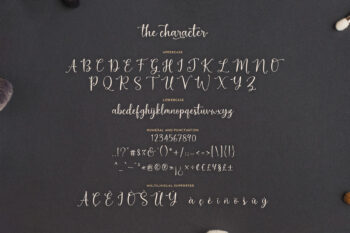 the character
UPPERCASE
A B C D E F G H I J K L M N O
P Q R S T U V W X Y Z
LOWERCASE
abcdefghijklmnopqrstuvwxyz
NUMERAL AND PUNCTUATION
1234567890
MULTILINGUAL SUPPORTED